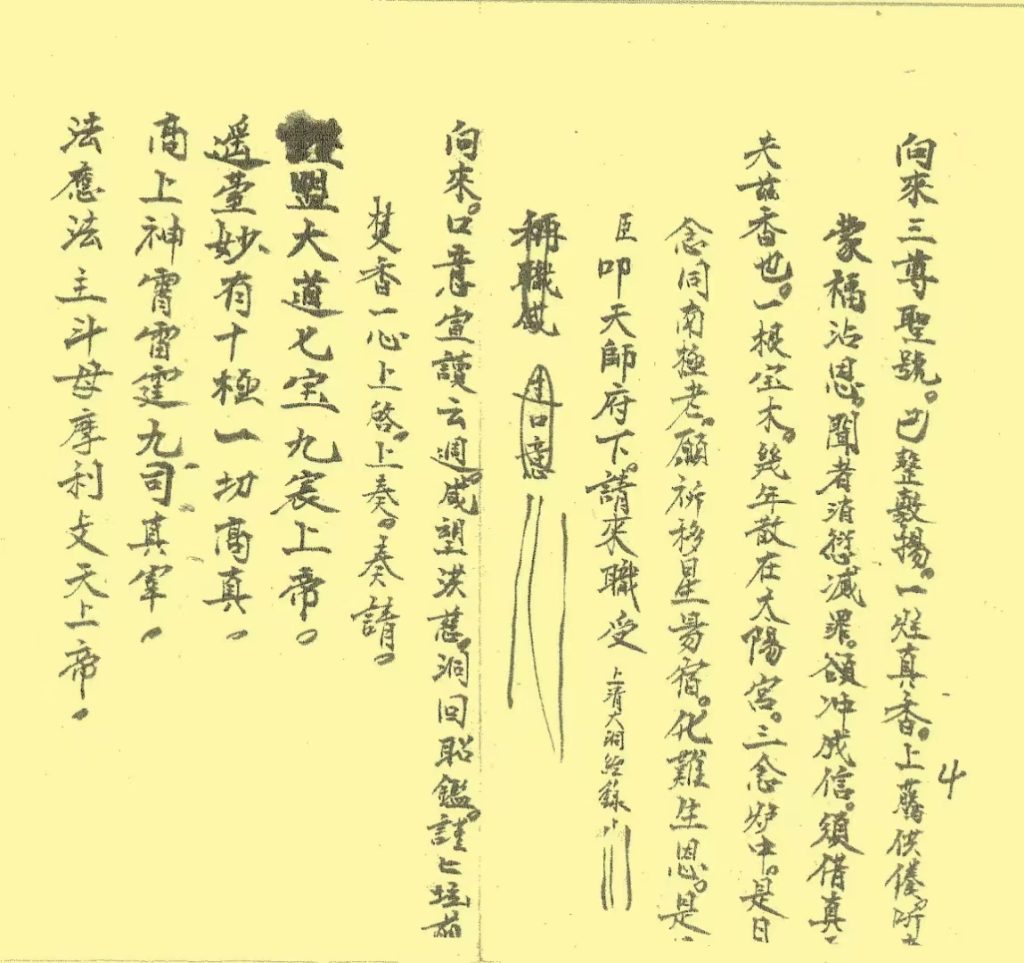 向來三尊聖號。已整敷揚。一炷真香。上荐供
蒙福沾恩。聞者消愆滅罪。欲冲成信。須借真
夫茲香也。一根宝木。幾年散在太陽宮。三念炉中。是日
念同南極老。願祈移星易宿。化難生恩。是
臣叩天師府下。請來職受 上清大洞經錄
稱職感 口意
向來。口意宣讀云週。咸望洪慈。洞回昭鑑。謹匕坛前
焚香一心上啓。上奏。奏請。
盟大道七宝九宸上帝。
遥堂妙有十極一切高真。
高上神霄雷霆九司真宰。
法應法主斗母摩利支天上帝。
4